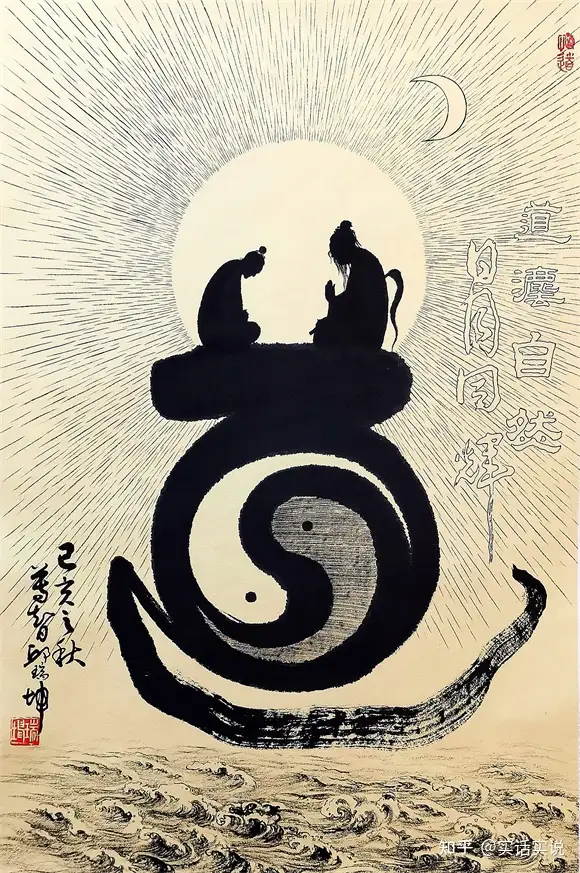 道灋自然
日月同煇
己亥之秋
尊智邱瑞坤
知乎 @实话实说